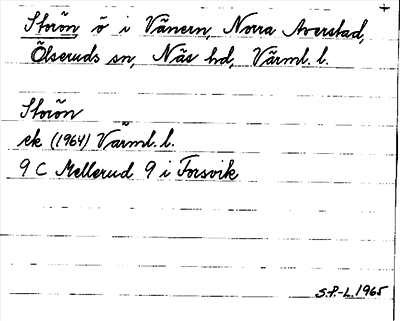 Storön, ö i Vänern, Norra Averstad,
Ölseruds sn, Näs hd, Värml. l.
Storön
ek (1964) Värml. l.
9 C Mellerud 9 i Forsvik
S.P.-L. 1965